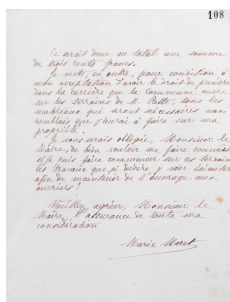 108
Ce serait donc au total une somme
de trois cents francs.
Je mets, en outre, pour condition à
mon acceptation d'avoir le droit de prendre
dans la carrière que la commune ouvre
sur les terrains de M. tous les
matériaux qui seront nécessaires aux
remblais que j'aurai à faire sur ma
propriété.
Je vous serais obligée, Monsieur le
Maire, de bien vouloir me faire connaître
si je puis faire commencer sur ce terrain
les travaux que je désire y voir exécuter
afin de maintenir de l'ouvrage aux
ouvriers ?
Veuillez agréer Monsieur le
Maire, l'assurance de toute ma
considération
Marie Moret